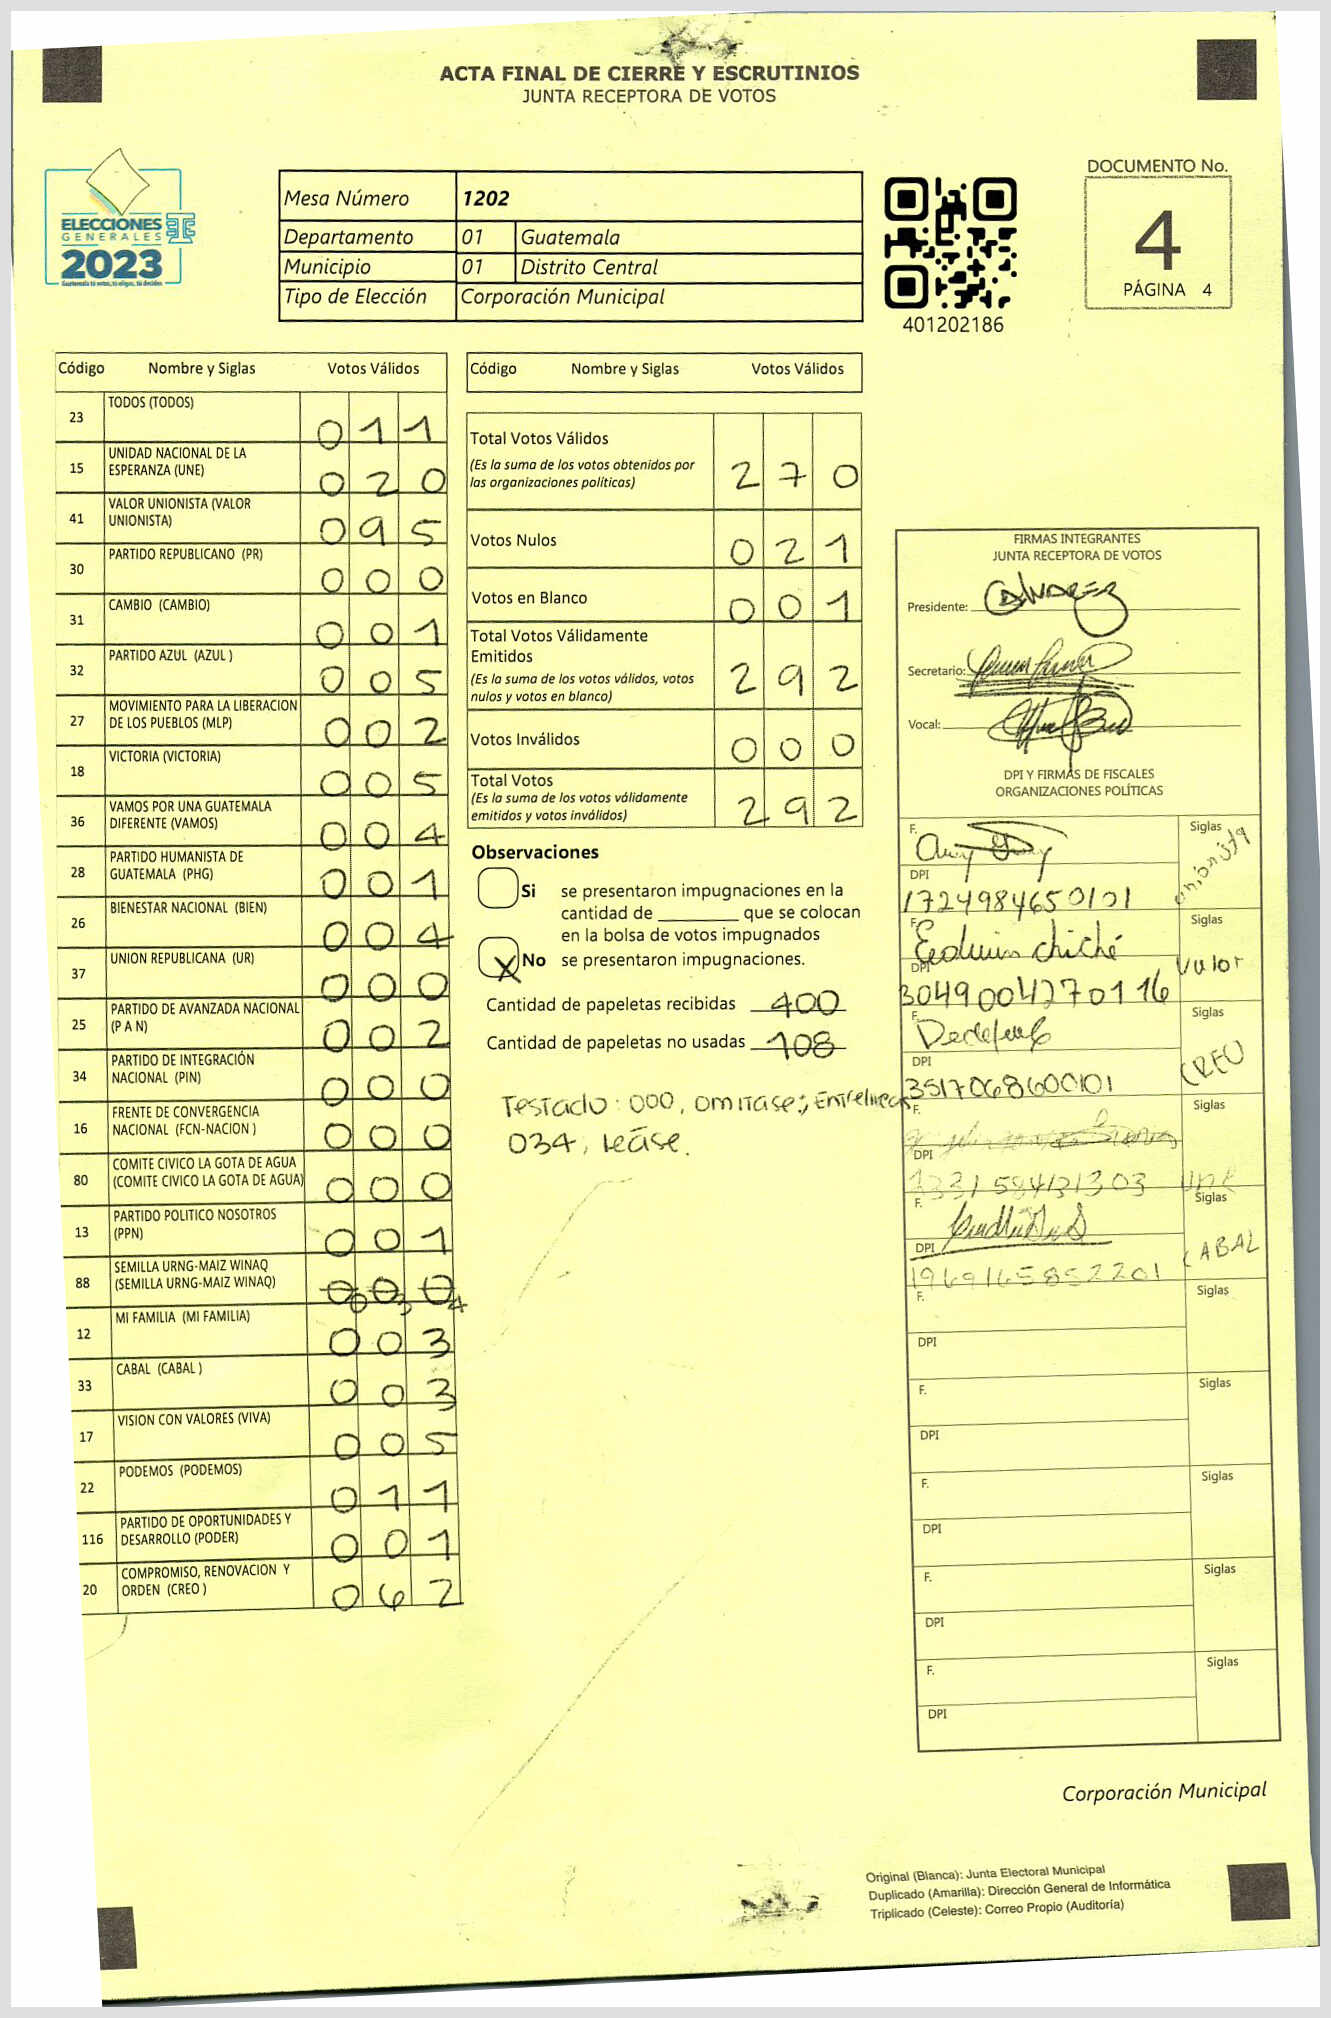 ACTA FINAL DE CIERRE Y ESCRUTINIOS
JUNTA RECEPTORA DE VOTOS
ELECCIONES
GENERALES
2023
Guatemala tú votas, tú eliges, tú decides
TSE
Mesa Número 1202
Departamento 01 Guatemala
Municipio 01 Distrito Central
Tipo de Elección Corporación Municipal
401202186
DOCUMENTO No.
4
PÁGINA 4
Código Nombre y Siglas Votos Válidos
23 TODOS (TODOS) 011
15 UNIDAD NACIONAL DE LA ESPERANZA (UNE) 020
41 VALOR UNIONISTA (VALOR UNIONISTA) 095
30 PARTIDO REPUBLICANO (PR) 000
31 CAMBIO (CAMBIO) 001
32 PARTIDO AZUL (AZUL ) 005
27 MOVIMIENTO PARA LA LIBERACION DE LOS PUEBLOS (MLP) 002
18 VICTORIA (VICTORIA) 005
36 VAMOS POR UNA GUATEMALA DIFERENTE (VAMOS) 004
28 PARTIDO HUMANISTA DE GUATEMALA (PHG) 001
26 BIENESTAR NACIONAL (BIEN) 004
37 UNION REPUBLICANA (UR) 000
25 PARTIDO DE AVANZADA NACIONAL (P A N) 002
34 PARTIDO DE INTEGRACIÓN NACIONAL (PIN) 000
16 FRENTE DE CONVERGENCIA NACIONAL (FCN-NACION ) 000
80 COMITE CIVICO LA GOTA DE AGUA (COMITE CIVICO LA GOTA DE AGUA) 000
13 PARTIDO POLITICO NOSOTROS (PPN) 001
88 SEMILLA URNG-MAIZ WINAQ (SEMILLA URNG-MAIZ WINAQ) 000 034
12 MI FAMILIA (MI FAMILIA) 003
33 CABAL (CABAL ) 003
17 VISION CON VALORES (VIVA) 005
22 PODEMOS (PODEMOS) 011
116 PARTIDO DE OPORTUNIDADES Y DESARROLLO (PODER) 001
20 COMPROMISO, RENOVACION Y ORDEN (CREO ) 062
Código Nombre y Siglas Votos Válidos
Total Votos Válidos 270
(Es la suma de los votos obtenidos por
las organizaciones políticas)
Votos Nulos 021
Votos en Blanco 001
Total Votos Válidamente
Emitidos 292
(Es la suma de los votos válidos, votos
nulos y votos en blanco)
Votos Inválidos 000
Total Votos 292
(Es la suma de los votos válidamente
emitidos y votos inválidos)
Observaciones
Si se presentaron impugnaciones en la
cantidad de ________ que se colocan
en la bolsa de votos impugnados
X No se presentaron impugnaciones.
Cantidad de papeletas recibidas 400
Cantidad de papeletas no usadas 108
Testado: 000, omitase;
034, Léase.
FIRMAS INTEGRANTES
JUNTA RECEPTORA DE VOTOS
Presidente:
Secretario:
Vocal:
DPI Y FIRMAS DE FISCALES
ORGANIZACIONES POLÍTICAS
F. Siglas unionista
DPI
1724984650101
F. Edwin Chiché Siglas Valor
DPI
3049004270116
F. Siglas CREO
DPI
3517068600101
F. Siglas UNE
DPI
F. Siglas CABAL
DPI
1969165852201
F. Siglas
DPI
F. Siglas
DPI
F. Siglas
DPI
F. Siglas
DPI
F. Siglas
DPI
Corporación Municipal
Original (Blanca): Junta Electoral Municipal
Duplicado (Amarilla): Dirección General de Informática
Triplicado (Celeste): Correo Propio (Auditoría)